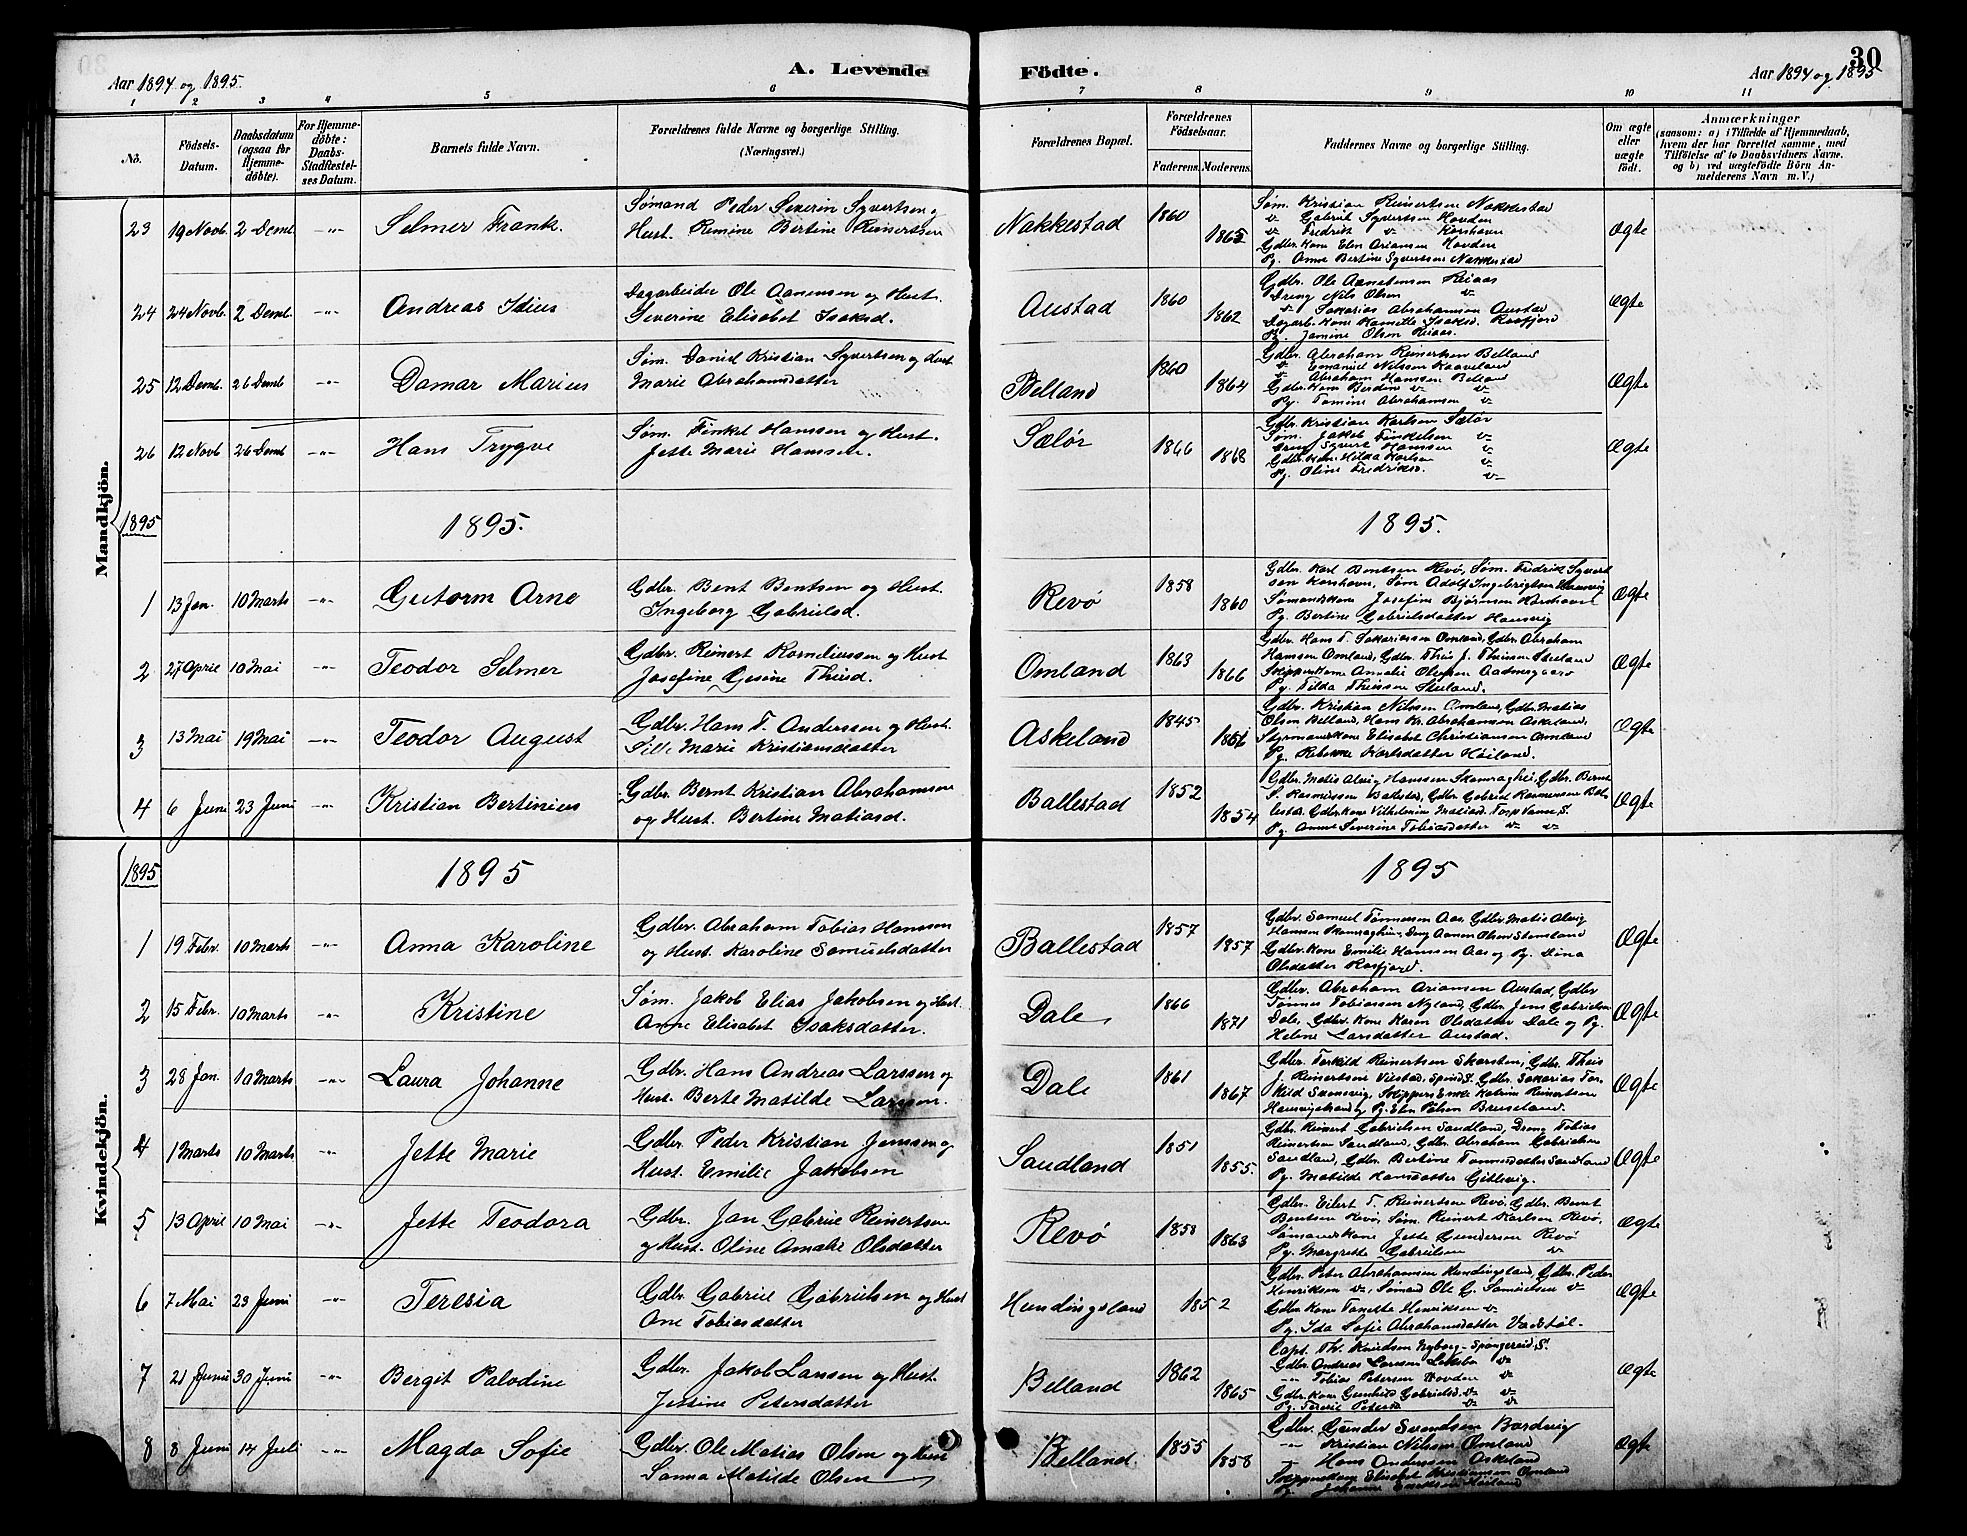 30
Aar 1894 og 1895.
A. Levende Födte.
Aar 1894 og 1895
1 2 3 4 5 6 7 8 9 10 11
No.
Födsels-
Datum.
Daabsdatum
(ogsaa for
Hjemme-
döbte).
For Hjemme-
döbte:
Daabs-
Stadfæstel-
ses Datum.
Barnets fulde Navn.
Forældrenes fulde Navne og borgerlige Stilling.
(Næringsvei.)
Forældrenes Bopæl.
Forældrenes
Födselsaar.
Faderens. Moderens.
Faddernes Navne og borgerlige Stilling.
Om ægte
eller
uægte
födt.
Anmærkninger
(saasom: a) i Tilfælde af Hjemmedaab,
hvem der har forrettet samme, med
Tilföielse af to Daabsvidners Navne.
og b) ved uægtefödte Börn An-
melderens Navn m. V.)
Mandkjön.
23 19 Novb. 2 Demb. -"- Selmer Frank.
Sömand Peder Severin Syvertsen og
Hust. Remine Bertine Reinertsen
Nakkestad 1860 1865
Söm. Kristian Reinertsen Nakkestad
v Gabriel Syvertsen Hovden
v Fredrik v Korshavn
Gdbr. Kone Elen Arionsen Hovden
Pg. Anne Bertine Syvertsen Nakkestad
Ægte
24 24 Novb. 2 Demb. -"- Andreas Idius
Dagarbeider Ole Aanensen og Hust.
Severine Elisabet Isaksd.
Austad 1860 1862
Gdbr. Ole Aanensen Reiaas
Dreng Nils Olsen v
v Sakarias Abrahamsen Austad
Dagarb. Kone Isaksd. Rosfjord
Pg. Jamine Olsen Reiaas.
Ægte
25 12 Demb. 26 Demb -"- Damar Marius
Söm. Daniel Kristian Syvertsen og Hust
Marie Abrahamsdatter
Belland 1860 1864
Gdbr. Abraham Reinertsen Belland
v Emanuel Nilsen Kaaveland
v Abraham Hansen Belland
Gdbr. Kone Berdine v v
Pg. Tomine Abrahamsen v
Ægte
26 12 Novb 26 Demb -"- Hans Trygve
Söm. Finkel Hanssen og Hust.
Jette Marie Hanssen.
Sælör 1866 1868
Gdbr. Kristian Karlsen Sælör
Söm. Jakob Finkelsen v
Dreng Syvert Hanssen v
Gdbr. Kone Hilda Karlsen v
Pg. Oline Fredriksd. v
Ægte
1895 1895. 1895.
1 13 Jan. 10 Marts -"- Gutorm Arne
Gdbr. Bent Bentsen og Hust.
Ingeborg Gabrielsd.
Revö 1858 1860
Gdbr. Karl Bentsen Revö, Söm. Fredrik Syvert
sen Korshavn, Söm Adolf Ingebrigtsen
Sömandskone Josefine Bjørnsen Korshavn
Pg. Bertine Gabrielsdatter
Ægte
2 27 April 10 Mai -"- Teodor Selmer
Gdbr. Reinert Korneliussen og Hust
Josefine Gesine Theisd.
Omland 1863 1866
Gdbr. Hans T. Sakariassen Omland, Gdbr. Abraham
Hanssen Omland, Gdbr. Theis J. Theissen
Skipperkone Amalie Olsen
Pg. Tilda Theissen
Ægte
3 13 Mai 19 Mai -"- Teodor August
Gdbr. Hans T. Anderssen og Hust.
Marie Kristiansdatter
Askeland 1845 1856
Gdbr. Kristian Nilssen Omland, Gdbr. Matias
Olsen Belland, Hans Kr. Abrahamsen Askeland,
Styrmandskone Elisabet Christiansen Omland
Pg. Rebekka Karlsdatter Höiland.
Ægte
4 6 Juni 23 Juni -"- Kristian Bertinius
Gdbr. Bernt Kristian Abrahamsen
og Hust. Bertine Matiasd.
Ballestad 1852 1854
Gdbr. Matis Alvig Hanssen Skomraghei, Gdbr. Bernt
S. Rasmussen Ballestad, Gdbr Gabriel Rasmussen Bal-
lestad. Gdbr Kone Vilhelmine Matiasd. Torp Vanse S.
Pg. Anne Severine Tobiasdatter v v
Ægte
Kvindekjön.
1895 1895 1895
1 19 Febr. 10 Marts -"- Anna Karoline
Gdbr. Abraham Tobias Hanssen
og Hust. Karoline Samuelsdatter
Ballestad 1857 1857
Gdbr. Samuel Tönnessen Aas, Gdbr. Matis Alvig
Hansen Skomraghei, Dreng Aanen Olsen Stensland
Gdbr. Kone Emilie Hanssen Aas og Pg. Lina
Olsdatter Rosfjord.
Ægte
2 15 Febr. 10 Marts -"- Kristine
Söm. Jakob Elias Jakobsen og Hust.
Anne Elisabet Isaksdatter.
Dale 1866 1871
Gdbr. Abraham Arionsen Austad, Gdbr
Tönnes Tobiassen Nyland, Gdbr. Jens Gabrielsen
Dale, Gdbr. Kone Karen Olsdatter Dale og Pg.
Helene Larsdatter Austad.
Ægte
3 28 Jan. 10 Marts -"- Laura Johanne
Gdbr. Hans Andreas Larssen og
Hust. Berte Matilde Larssen.
Dale 1861 1867
Gdbr. Torkild Reinertsen Skarsten, Gdbr. Theis
J. Reinertsen Viestad, Spind S. Gdbr. Sakarias Tor-
kild Svensvig, Skippers Enke Katrine Reinertsen
og Pg. Elen Palsen Bruseland.
Ægte
4 1 Marts 10 Marts -"- Jette Marie
Gdbr. Peder Kristian Jenssen og
Hust. Emilie Jakobsen
Sandland 1851 1855.
Gdbr. Reinert Gabrielsen Sandland, Dreng Tobias
Reinertsen Sandland, Gdbr. Abraham Gabrielsen
Sandland, Gdbr. Bertine Tönnesdatter Sandland
Pg. Matilde Hansdatter Gitlevig.
Ægte
5 13 April 10 Mai -"- Jette Teodora
Gdbr. Jan Gabriel Reinertsen
og Hust. Oline Amalie Olsdatter
Revö 1858 1863
Gdbr. Eilert T. Reinertsen Revö, Gdbr. Bernt
Bentsen Revö, Söm. Reinert Karlsen Revö,
Sömandskone Jette Gundersen Revö
Pg. Margrethe Gabrielsen v
Ægte
6 7 Mai 23 Juni -"- Teresia
Gdbr. Gabriel Gabrielsen og Hust
Ane Tobiasdatter
Hundingsland 1852
Gdbr. Peter Abrahamsen Hundingsland, Gdbr. Peder
Henriksen v, Sömand Ole G. Samuelsen v
Gdbr Kone Tonette Henriksen v
Pg. Ida Sofie Abrahamsdatter Vadstöl.
Ægte
7 21 Juni 30 Juni -"- Bergit Palodine
Gdbr. Jakob Larssen og Hust.
Jessine Petersdatter
Belland 1862 1865
Capt. Th. Knudsen Nyborg - Spangereid, S.
Gdbr. Andreas Larssen v
-"- Tobias Petersen Hovden v
Gdbr. Kone Gunhild Gabrielsd. v v
Pg. Terese Petersd. v v
Ægte
8 8 Juni 14 Juli -"- Magda Sofie
Gdbr. Ole Matias Olsen og Hust
Sanna Matilde Olsen
Belland. 1855 1858
Gdbr. Gunder Svendsen Bordvig
-"- Kristian Nilssen Omland
-"- Hans Anderssen Askeland
Skipperskone Elisabet Kristiansen Omland
Pg. Johanne Höiland
Ægte